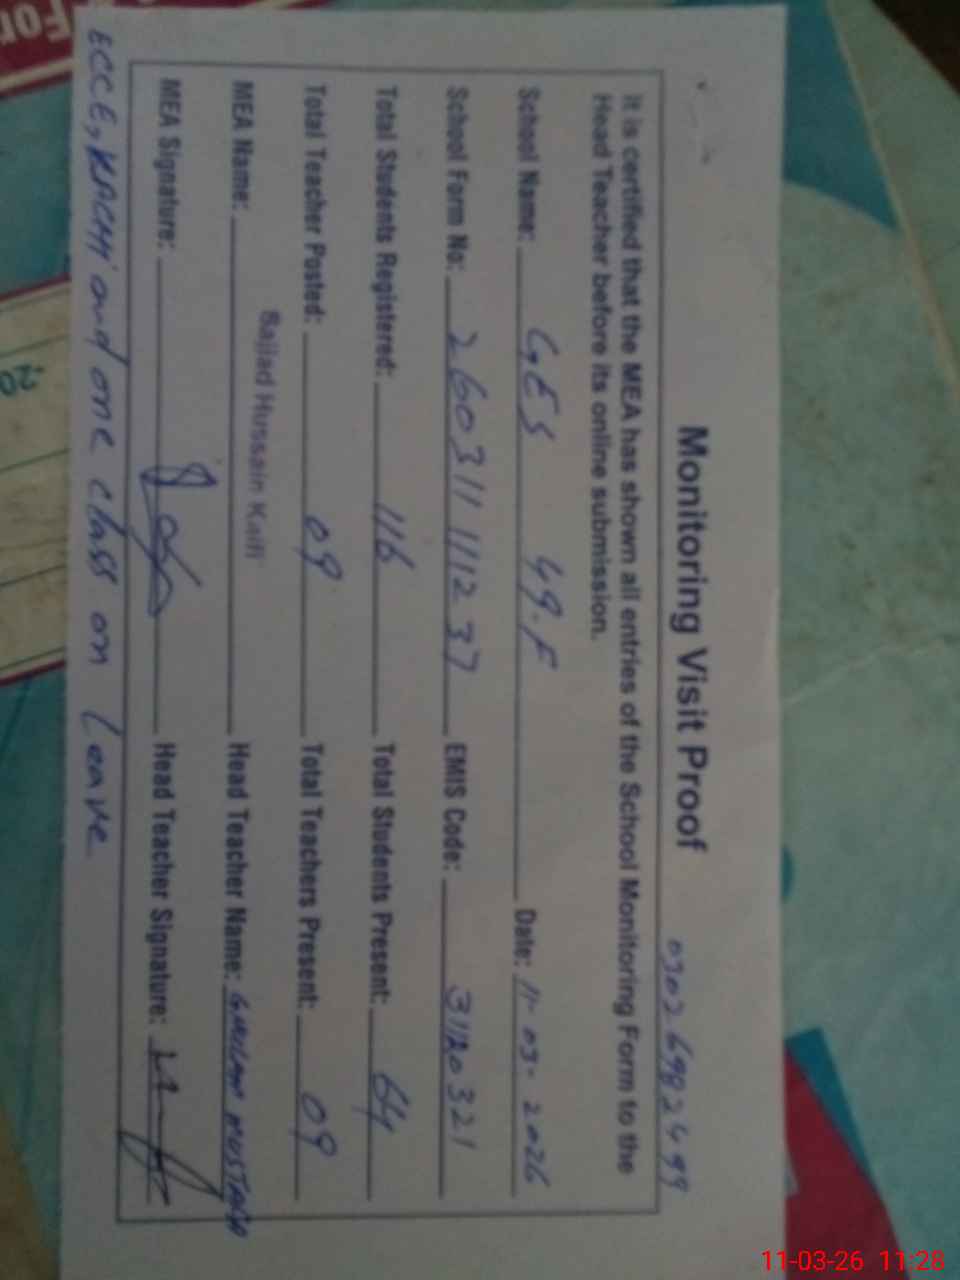 Monitoring Visit Proof 03026982499
It is certified that the MEA has shown all entries of the School Monitoring Form to the
Head Teacher before its online submission.
School Name: GES 49.F Date: 11-03-2026
School Form No: 260311111237 EMIS Code: 31120321
Total Students Registered: 116 Total Students Present: 64
Total Teacher Posted: 09 Total Teachers Present: 09
MEA Name: Sajjad Hussain Kaifi Head Teacher Name: GHULAM MUSTAFA
MEA Signature: Head Teacher Signature:
ECCE, KACHI and one class on leave
For
-20
11-03-26 11:28